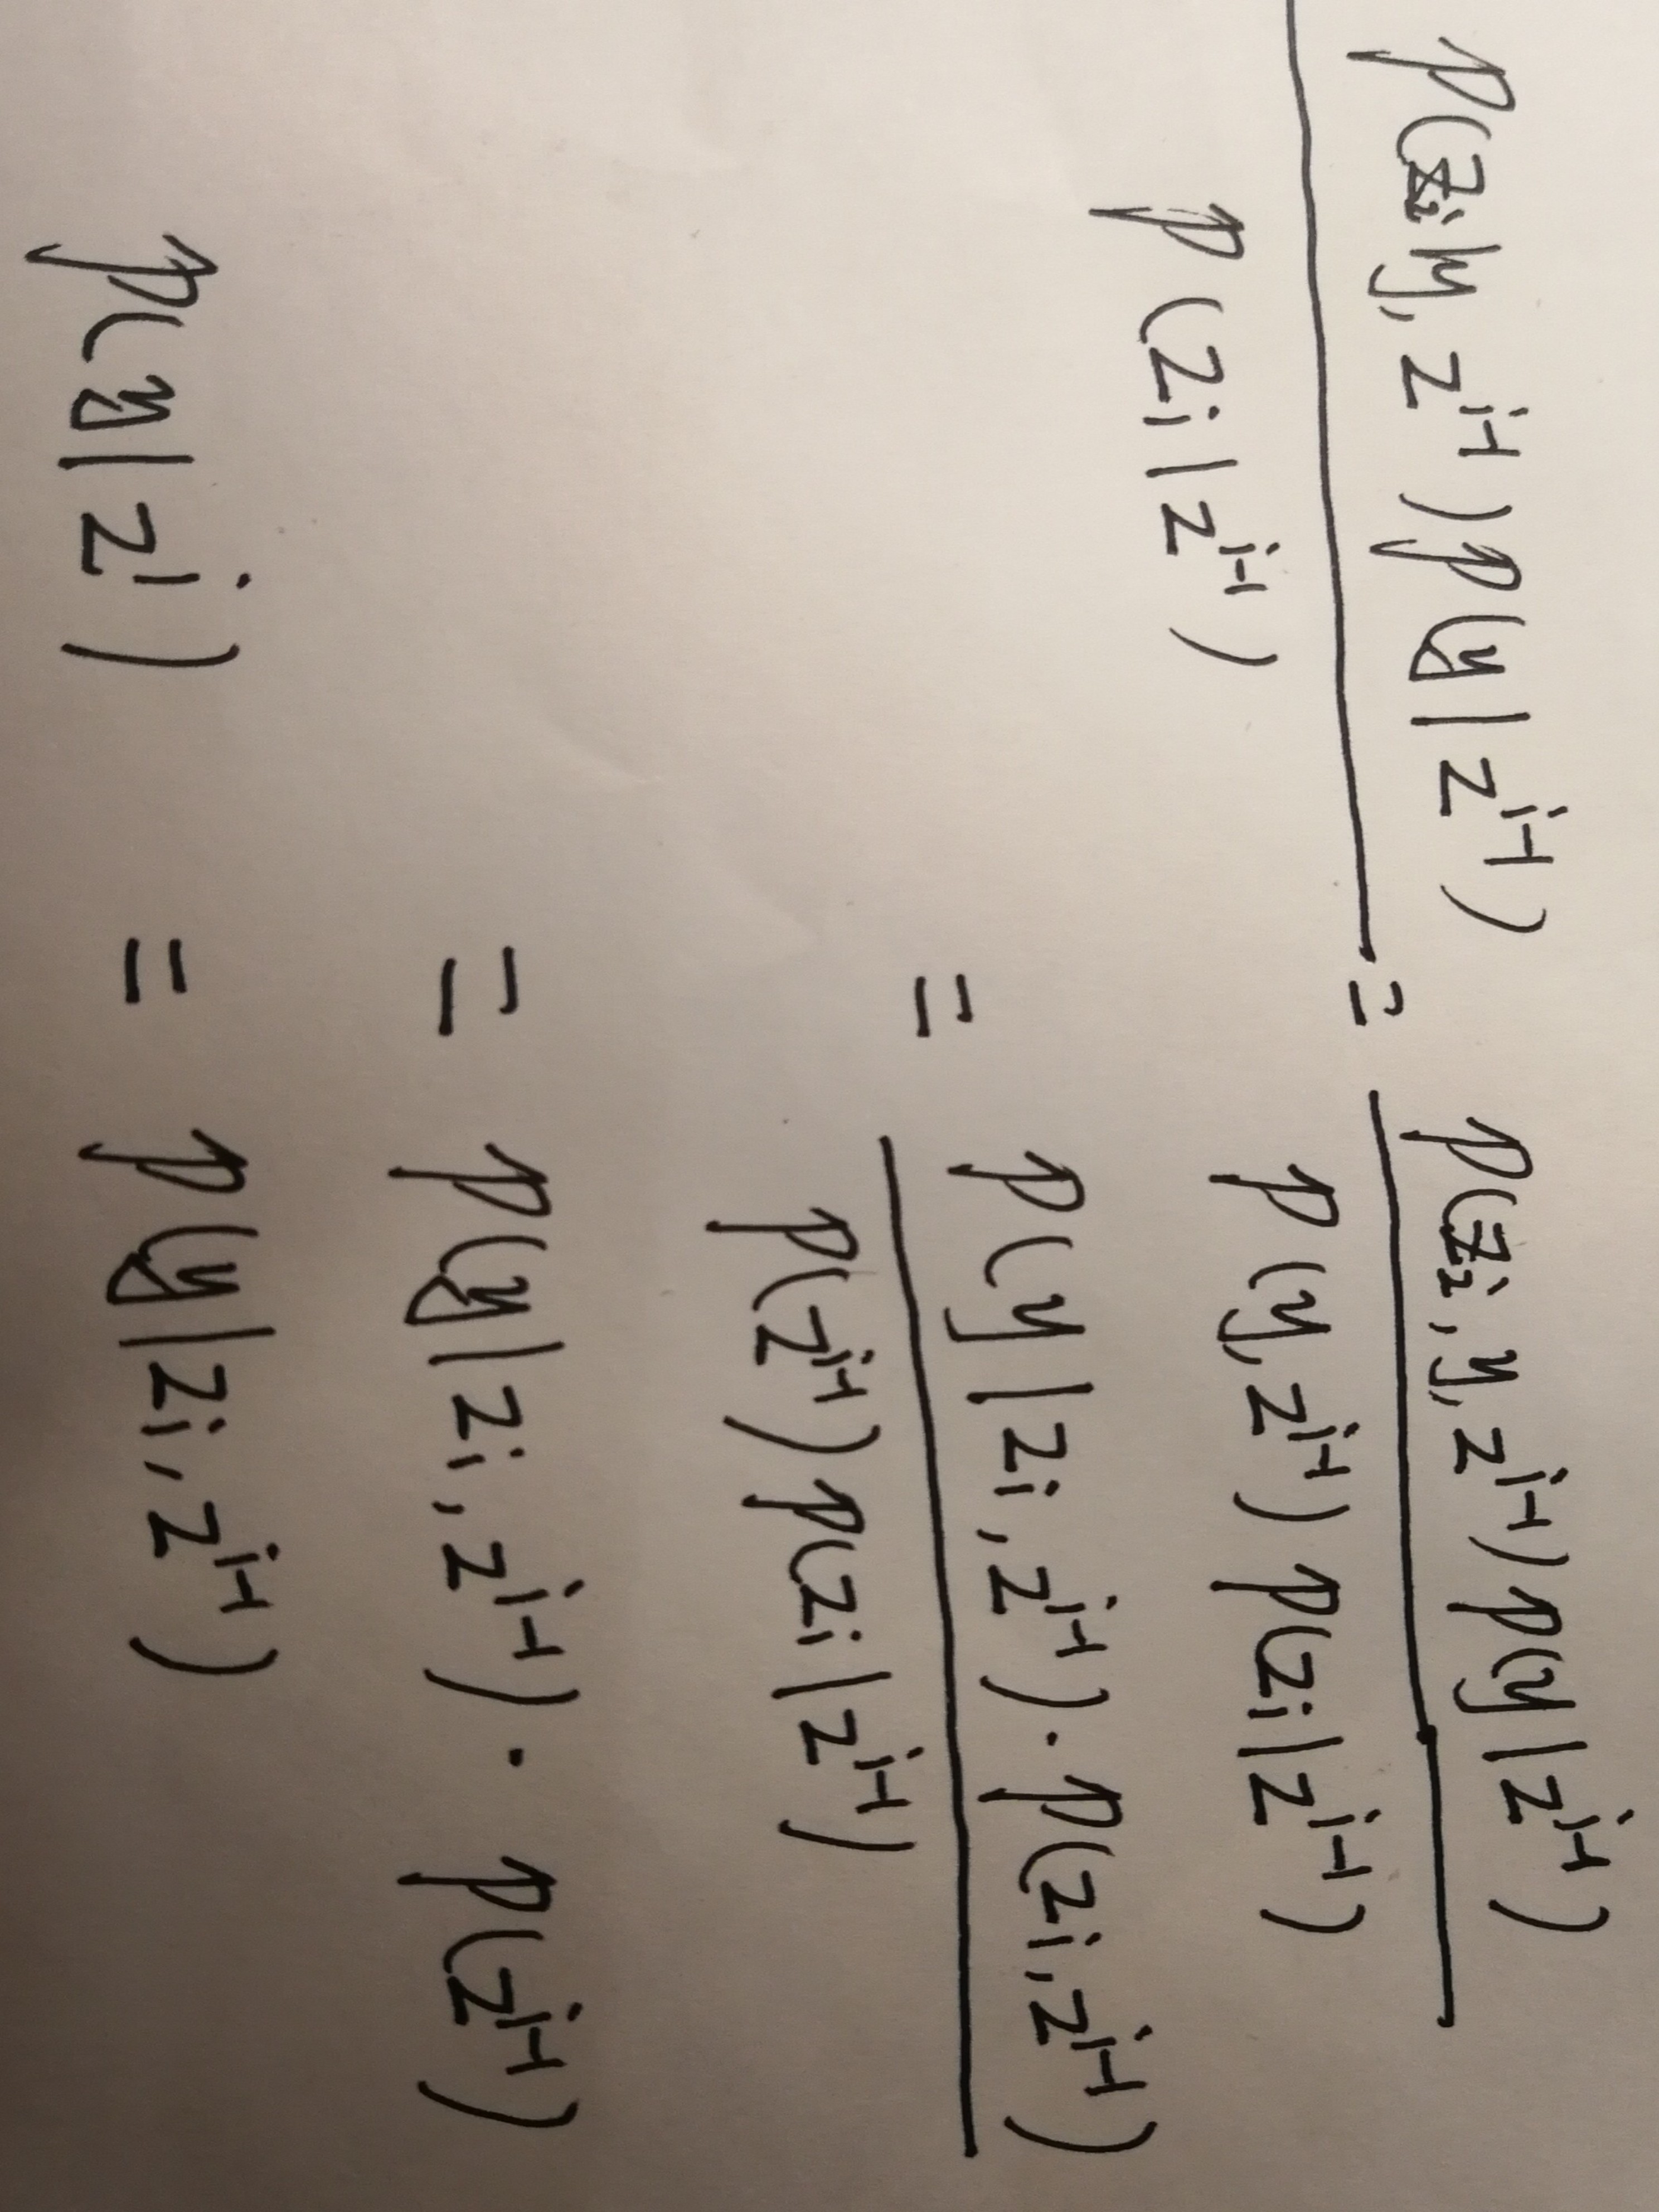 p(z_i|y, z^{i-1}) p(y|z^{i-1}) / p(z_i|z^{i-1}) = p(z_i, y, z^{i-1}) p(y|z^{i-1}) / p(y, z^{i-1}) p(z_i|z^{i-1})
= p(y|z_i, z^{i-1}) · p(z_i, z^{i-1}) / p(z^{i-1}) p(z_i|z^{i-1})
= p(y|z_i, z^{i-1}) · p(z^{i-1})
p(y|z^i) = p(y|z_i, z^{i-1})